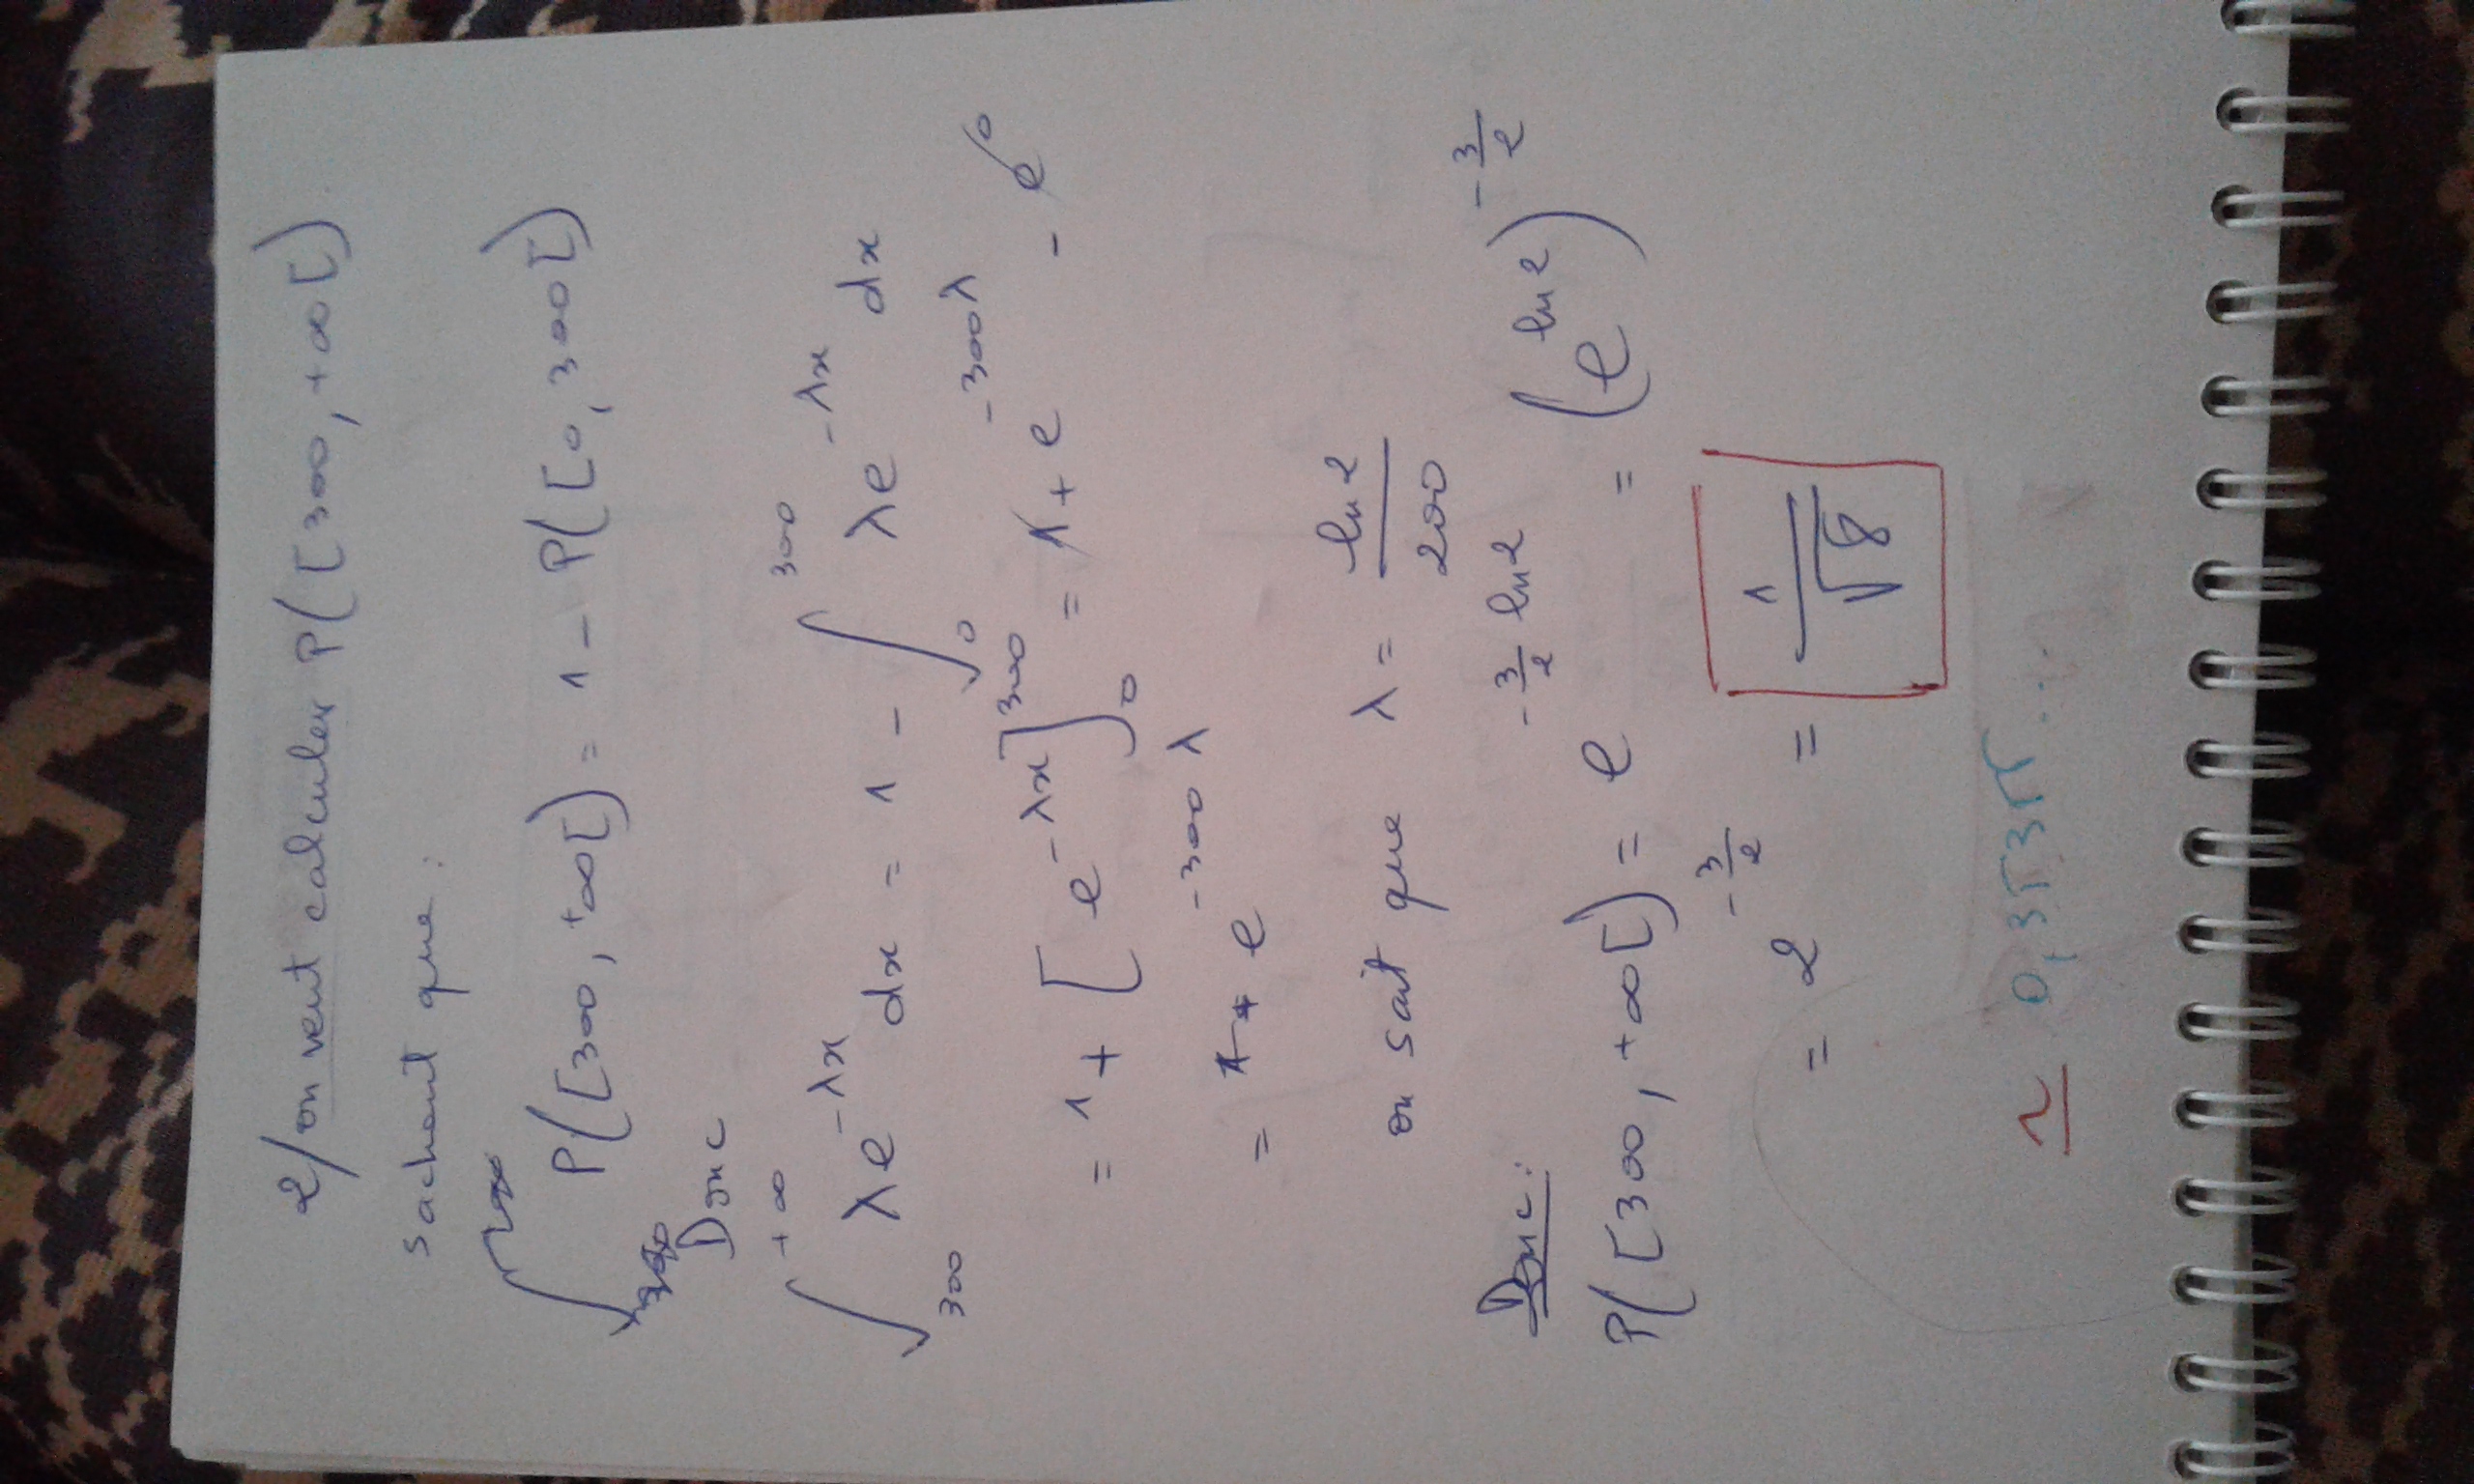 2/ on veut calculer P([300, +∞[)
sachant que :
P([300, +∞[) = 1 - P([0, 300[)
Donc
∫_{300}^{+∞} λe^{-λx} dx = 1 - ∫_{0}^{300} λe^{-λx} dx
= 1 + [e^{-λx}]_{0}^{300} = 1 + e^{-300λ} - e^{0}
= e^{-300λ}
on sait que λ = ln2/200
Donc :
P([300, +∞[) = e^{-3/2 ln2} = (e^{ln2})^{-3/2}
= 2^{-3/2} = 1/√8
≃ 0,35355...